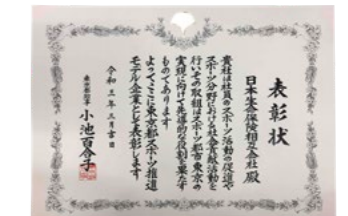 表彰状
日本生命保険相互会社 殿
貴社は社員のスポーツ活動の促進や
スポーツ分野における社会貢献活動を
行いその取組はスポーツ都市東京の
実現に向けて先導的な役割を果たす
ものであります
よってここに東京都スポーツ推進
モデル企業として表彰します
令和三年三月吉日
東京都知事 小池百合子